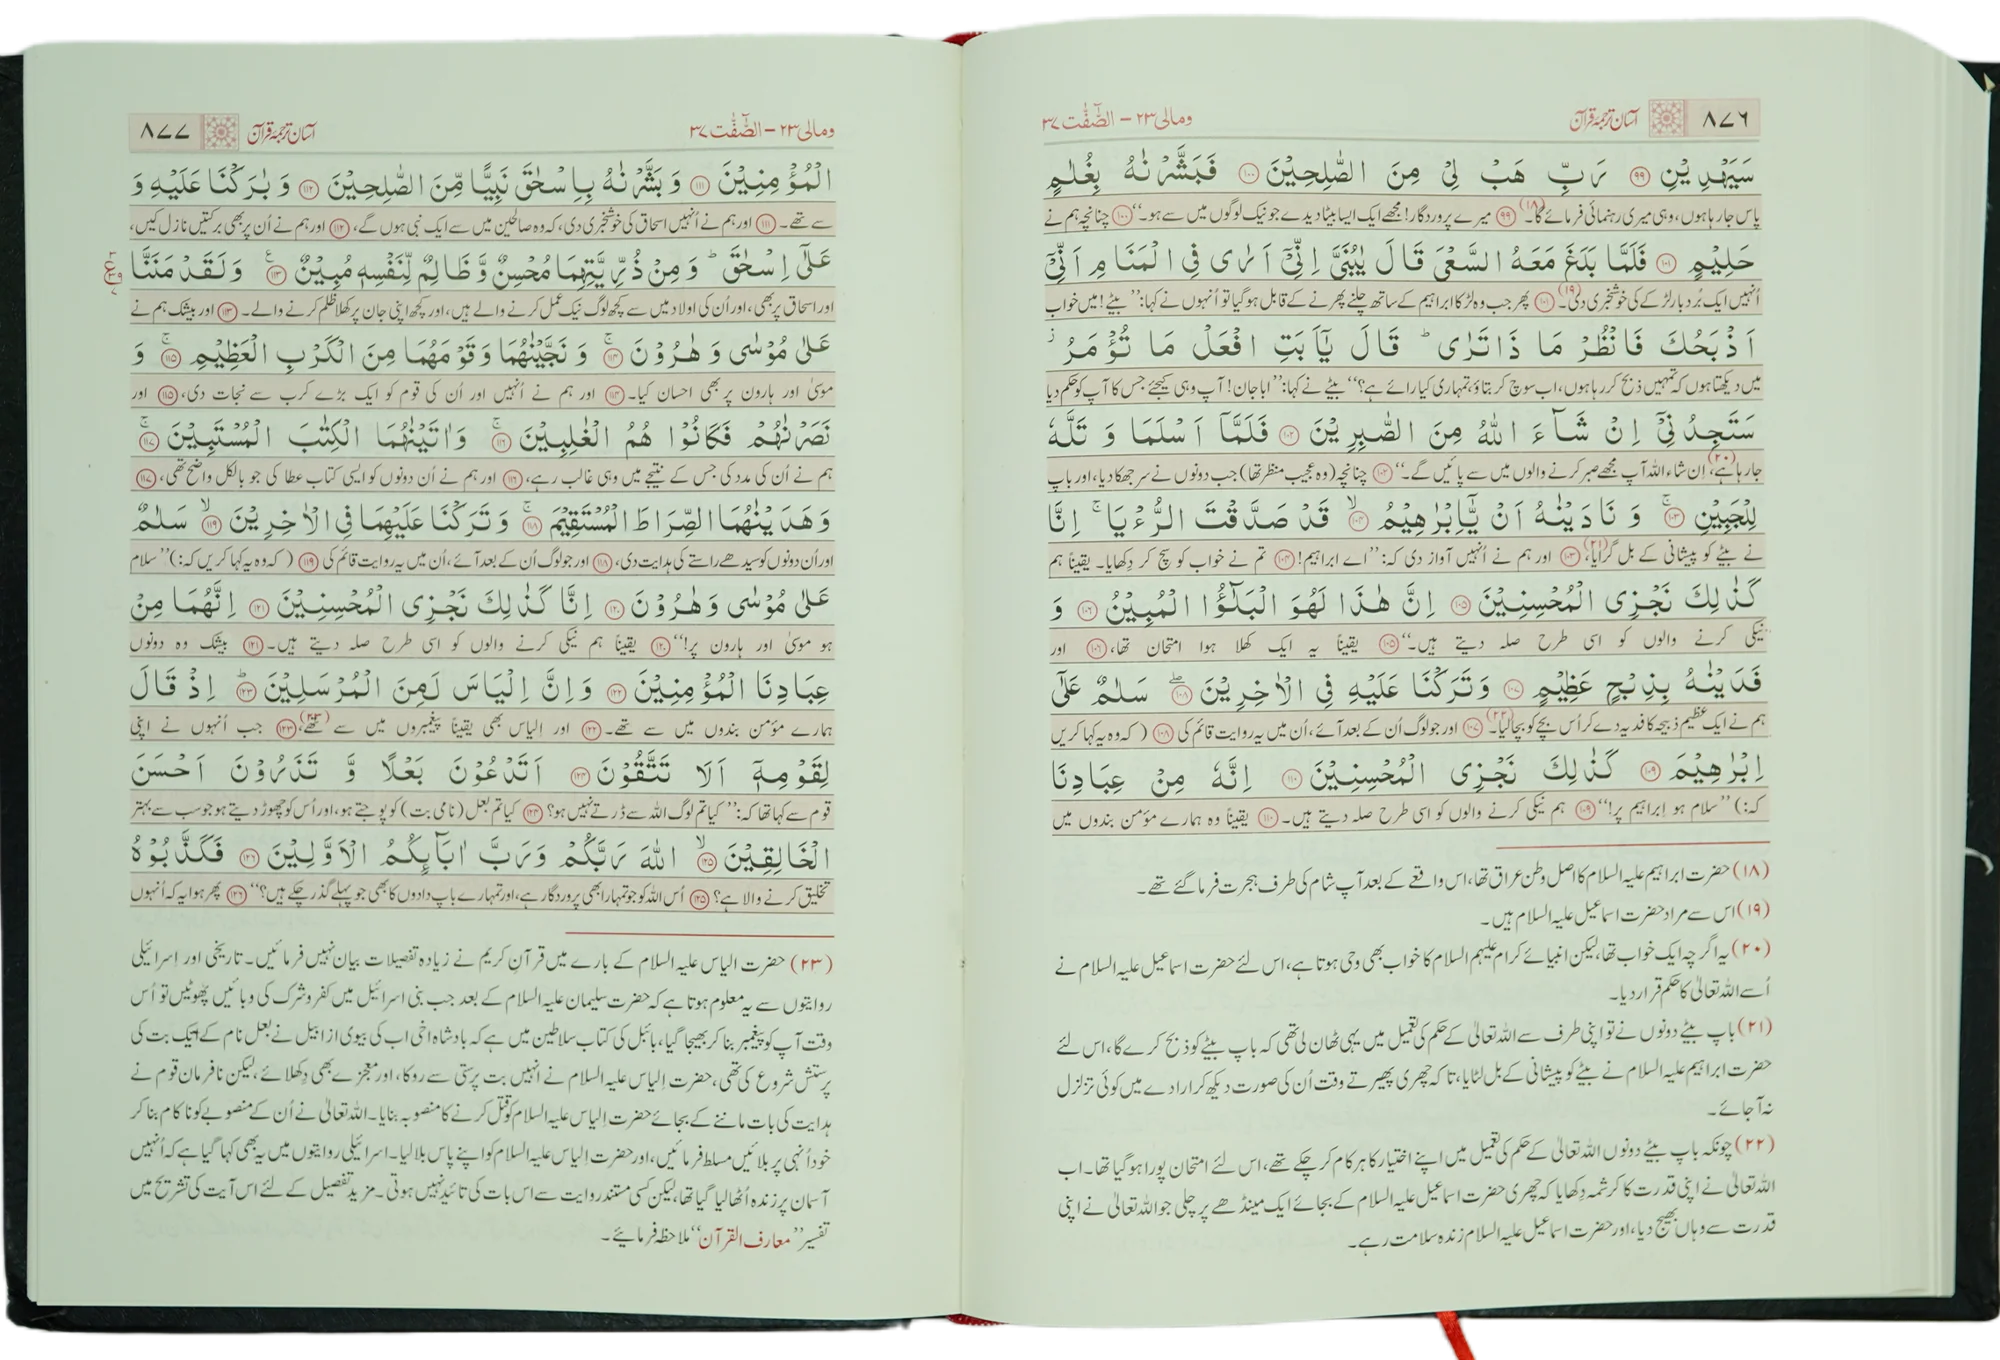 ۸۷۶ آسان ترجمۂ قرآن ومالی ۲۳ – الصّٰٓفّٰت ۳۷
سَیَهْدِیْنِ ۹۹ رَبِّ هَبْ لِیْ مِنَ الصّٰلِحِیْنَ ۱۰۰ فَبَشَّرْنٰهُ بِغُلٰمٍ
پاس جارہا ہوں، وہی میری رہنمائی فرمائے گا۔(۱۸) ۹۹ میرے پروردگار! مجھے ایک ایسا بیٹا دیدے جو نیک لوگوں میں سے ہو۔‘‘ ۱۰۰ چنانچہ ہم نے
حَلِیْمٍ ۱۰۱ فَلَمَّا بَلَغَ مَعَهُ السَّعْیَ قَالَ یٰبُنَیَّ اِنِّیْۤ اَرٰی فِی الْمَنَامِ اَنِّیْۤ
اُنہیں ایک بُردبار لڑکے کی خوشخبری دی۔(۱۹) ۱۰۱ پھر جب وہ لڑکا ابراہیم کے ساتھ چلنے پھرنے کے قابل ہوگیا تو اُنہوں نے کہا: ’’بیٹے! میں خواب
اَذْبَحُكَ فَانْظُرْ مَا ذَا تَرٰی ؕ قَالَ یٰۤاَبَتِ افْعَلْ مَا تُؤْمَرُ ؗ
میں دیکھتا ہوں کہ تمہیں ذبح کر رہا ہوں، اب سوچ کر بتاؤ، تمہاری کیا رائے ہے؟‘‘ بیٹے نے کہا: ’’ابا جان! آپ وہی کیجئے جس کا آپ کو حکم دیا
سَتَجِدُنِیْۤ اِنْ شَآءَ اللّٰهُ مِنَ الصّٰبِرِیْنَ ۱۰۲ فَلَمَّاۤ اَسْلَمَا وَ تَلَّهٗ
جارہا ہے،(۲۰) اِن شاء اللہ آپ مجھے صبر کرنے والوں میں سے پائیں گے۔‘‘ ۱۰۲ چنانچہ (وہ عجیب منظر تھا) جب دونوں نے سر جھکا دیا، اور باپ
لِلْجَبِیْنِ ۚ ۱۰۳ وَ نَادَیْنٰهُ اَنْ یّٰۤاِبْرٰهِیْمُ ۙ ۱۰۴ قَدْ صَدَّقْتَ الرُّءْیَا ۚ اِنَّا
نے بیٹے کو پیشانی کے بل گرایا،(۲۱) ۱۰۳ اور ہم نے اُنہیں آواز دی کہ: ’’اے ابراہیم! ۱۰۴ تم نے خواب کو سچ کر دِکھایا۔ یقیناً ہم
كَذٰلِكَ نَجْزِی الْمُحْسِنِیْنَ ۱۰۵ اِنَّ هٰذَا لَهُوَ الْبَلٰٓؤُا الْمُبِیْنُ ۱۰۶ وَ
نیکی کرنے والوں کو اسی طرح صلہ دیتے ہیں۔‘‘ ۱۰۵ یقیناً یہ ایک کھلا ہوا امتحان تھا، ۱۰۶ اور
فَدَیْنٰهُ بِذِبْحٍ عَظِیْمٍ ۱۰۷ وَتَرَكْنَا عَلَیْهِ فِی الْاٰخِرِیْنَ ۖ ۱۰۸ سَلٰمٌ عَلٰۤی
ہم نے ایک عظیم ذبیحہ کا فدیہ دے کر اُس بچے کو بچالیا۔(۲۲) ۱۰۷ اور جو لوگ اُن کے بعد آئے، اُن میں یہ روایت قائم کی ۱۰۸ (کہ وہ یہ کہا کریں
اِبْرٰهِیْمَ ۱۰۹ كَذٰلِكَ نَجْزِی الْمُحْسِنِیْنَ ۱۱۰ اِنَّهٗ مِنْ عِبَادِنَا
کہ:) ’’سلام ہو ابراہیم پر!‘‘ ۱۰۹ ہم نیکی کرنے والوں کو اسی طرح صلہ دیتے ہیں۔ ۱۱۰ یقیناً وہ ہمارے مؤمن بندوں میں
(۱۸) حضرت ابراہیم علیہ السلام کا اصل وطن عراق تھا، اس واقعے کے بعد آپ شام کی طرف ہجرت فرما گئے تھے۔
(۱۹) اس سے مراد حضرت اسماعیل علیہ السلام ہیں۔
(۲۰) یہ اگرچہ ایک خواب تھا، لیکن انبیائے کرام علیہم السلام کا خواب بھی وحی ہوتا ہے، اس لئے حضرت اسماعیل علیہ السلام نے
اُسے اللہ تعالیٰ کا حکم قرار دیا۔
(۲۱) باپ بیٹے دونوں نے تو اپنی طرف سے اللہ تعالیٰ کے حکم کی تعمیل میں یہی ٹھان لی تھی کہ باپ بیٹے کو ذبح کرے گا، اس لئے
حضرت ابراہیم علیہ السلام نے بیٹے کو پیشانی کے بل لٹایا، تاکہ چھری پھیرتے وقت اُن کی صورت دیکھ کر ارادے میں کوئی تزلزل
نہ آجائے۔
(۲۲) چونکہ باپ بیٹے دونوں اللہ تعالیٰ کے حکم کی تعمیل میں اپنے اختیار کا ہر کام کر چکے تھے، اس لئے امتحان پورا ہوگیا تھا۔ اب
اللہ تعالیٰ نے اپنی قدرت کا کرشمہ دکھایا کہ چھری حضرت اسماعیل علیہ السلام کے بجائے ایک مینڈھے پر چلی جو اللہ تعالیٰ نے اپنی
قدرت سے وہاں بھیج دیا، اور حضرت اسماعیل علیہ السلام زندہ سلامت رہے۔
ومالی ۲۳ – الصّٰٓفّٰت ۳۷ آسان ترجمۂ قرآن ۸۷۷
الْمُؤْمِنِیْنَ ۱۱۱ وَ بَشَّرْنٰهُ بِاِسْحٰقَ نَبِیًّا مِّنَ الصّٰلِحِیْنَ ۱۱۲ وَ بٰرَكْنَا عَلَیْهِ وَ
سے تھے۔ ۱۱۱ اور ہم نے اُنہیں اسحاق کی خوشخبری دی، کہ وہ صالحین میں سے ایک نبی ہوں گے، ۱۱۲ اور ہم نے اُن پر بھی برکتیں نازل کیں،
عَلٰۤی اِسْحٰقَ ؕ وَ مِنْ ذُرِّیَّتِهِمَا مُحْسِنٌ وَّ ظَالِمٌ لِّنَفْسِهٖ مُبِیْنٌ ۱۱۳ وَ لَقَدْ مَنَنَّا
اور اسحاق پر بھی، اور اُن کی اولاد میں سے کچھ لوگ نیک عمل کرنے والے ہیں، اور کچھ اپنی جان پر کھلا ظلم کرنے والے۔ ۱۱۳ اور بیشک ہم نے
عَلٰی مُوْسٰی وَ هٰرُوْنَ ۚ ۱۱۴ وَ نَجَّیْنٰهُمَا وَ قَوْمَهُمَا مِنَ الْكَرْبِ الْعَظِیْمِ ۚ ۱۱۵ وَ
موسیٰ اور ہارون پر بھی احسان کیا۔ ۱۱۴ اور ہم نے اُنہیں اور اُن کی قوم کو ایک بڑے کرب سے نجات دی، ۱۱۵ اور
نَصَرْنٰهُمْ فَكَانُوْا هُمُ الْغٰلِبِیْنَ ۚ ۱۱۶ وَ اٰتَیْنٰهُمَا الْكِتٰبَ الْمُسْتَبِیْنَ ۚ ۱۱۷
ہم نے اُن کی مدد کی جس کے نتیجے میں وہی غالب رہے، ۱۱۶ اور ہم نے اُن دونوں کو ایسی کتاب عطا کی جو بالکل واضح تھی، ۱۱۷
وَ هَدَیْنٰهُمَا الصِّرَاطَ الْمُسْتَقِیْمَ ۚ ۱۱۸ وَ تَرَكْنَا عَلَیْهِمَا فِی الْاٰخِرِیْنَ ۙ ۱۱۹ سَلٰمٌ
اور اُن دونوں کو سیدھے راستے کی ہدایت دی، ۱۱۸ اور جو لوگ اُن کے بعد آئے، اُن میں یہ روایت قائم کی ۱۱۹ (کہ وہ یہ کہا کریں کہ:) ’’سلام
عَلٰی مُوْسٰی وَ هٰرُوْنَ ۱۲۰ اِنَّا كَذٰلِكَ نَجْزِی الْمُحْسِنِیْنَ ۱۲۱ اِنَّهُمَا مِنْ
ہو موسیٰ اور ہارون پر!‘‘ ۱۲۰ یقیناً ہم نیکی کرنے والوں کو اسی طرح صلہ دیتے ہیں۔ ۱۲۱ بیشک وہ دونوں
عِبَادِنَا الْمُؤْمِنِیْنَ ۱۲۲ وَ اِنَّ اِلْیَاسَ لَمِنَ الْمُرْسَلِیْنَ ؕ ۱۲۳ اِذْ قَالَ
ہمارے مؤمن بندوں میں سے تھے۔ ۱۲۲ اور اِلیاس بھی یقیناً پیغمبروں میں سے تھے،(۲۳) ۱۲۳ جب اُنہوں نے اپنی
لِقَوْمِهٖۤ اَلَا تَتَّقُوْنَ ۱۲۴ اَتَدْعُوْنَ بَعْلًا وَّ تَذَرُوْنَ اَحْسَنَ
قوم سے کہا تھا کہ: ’’کیا تم لوگ اللہ سے ڈرتے نہیں ہو؟ ۱۲۴ کیا تم بعل (نامی بت) کو پوجتے ہو، اور اُس کو چھوڑ دیتے ہو جو سب سے بہتر
الْخَالِقِیْنَ ۙ ۱۲۵ اللّٰهَ رَبَّكُمْ وَ رَبَّ اٰبَآىِٕكُمُ الْاَوَّلِیْنَ ۱۲۶ فَكَذَّبُوْهُ
تخلیق کرنے والا ہے؟ ۱۲۵ اُس اللہ کو جو تمہارا بھی پروردگار ہے، اور تمہارے باپ دادوں کا بھی جو پہلے گذر چکے ہیں؟‘‘ ۱۲۶ پھر ہوا یہ کہ اُنہوں
(۲۳) حضرت الیاس علیہ السلام کے بارے میں قرآنِ کریم نے زیادہ تفصیلات بیان نہیں فرمائیں۔ تاریخی اور اِسرائیلی
روایتوں سے یہ معلوم ہوتا ہے کہ حضرت سلیمان علیہ السلام کے بعد جب بنی اسرائیل میں کفر و شرک کی وبائیں پھوٹیں تو اُس
وقت آپ کو پیغمبر بنا کر بھیجا گیا، بائبل کی کتاب سلاطین میں ہے کہ بادشاہ اخی اب کی بیوی ازابیل نے بعل نام کے ایک بت کی
پرستش شروع کی تھی، حضرت اِلیاس علیہ السلام نے انہیں بت پرستی سے روکا، اور معجزے بھی دِکھلائے، لیکن نافرمان قوم نے
ہدایت کی بات ماننے کے بجائے حضرت اِلیاس علیہ السلام کو قتل کرنے کا منصوبہ بنایا۔ اللہ تعالیٰ نے اُن کے منصوبے کو ناکام بنا کر
خود اُنہی پر بلائیں مسلط فرمائیں، اور حضرت اِلیاس علیہ السلام کو اپنے پاس بلالیا۔ اسرائیلی روایتوں میں یہ بھی کہا گیا ہے کہ اُنہیں
آسمان پر زندہ اُٹھالیا گیا تھا، لیکن کسی مستند روایت سے اس بات کی تائید نہیں ہوتی۔ مزید تفصیل کے لئے اس آیت کی تشریح میں
تفسیر ’’معارف القرآن‘‘ ملاحظہ فرمائیے۔